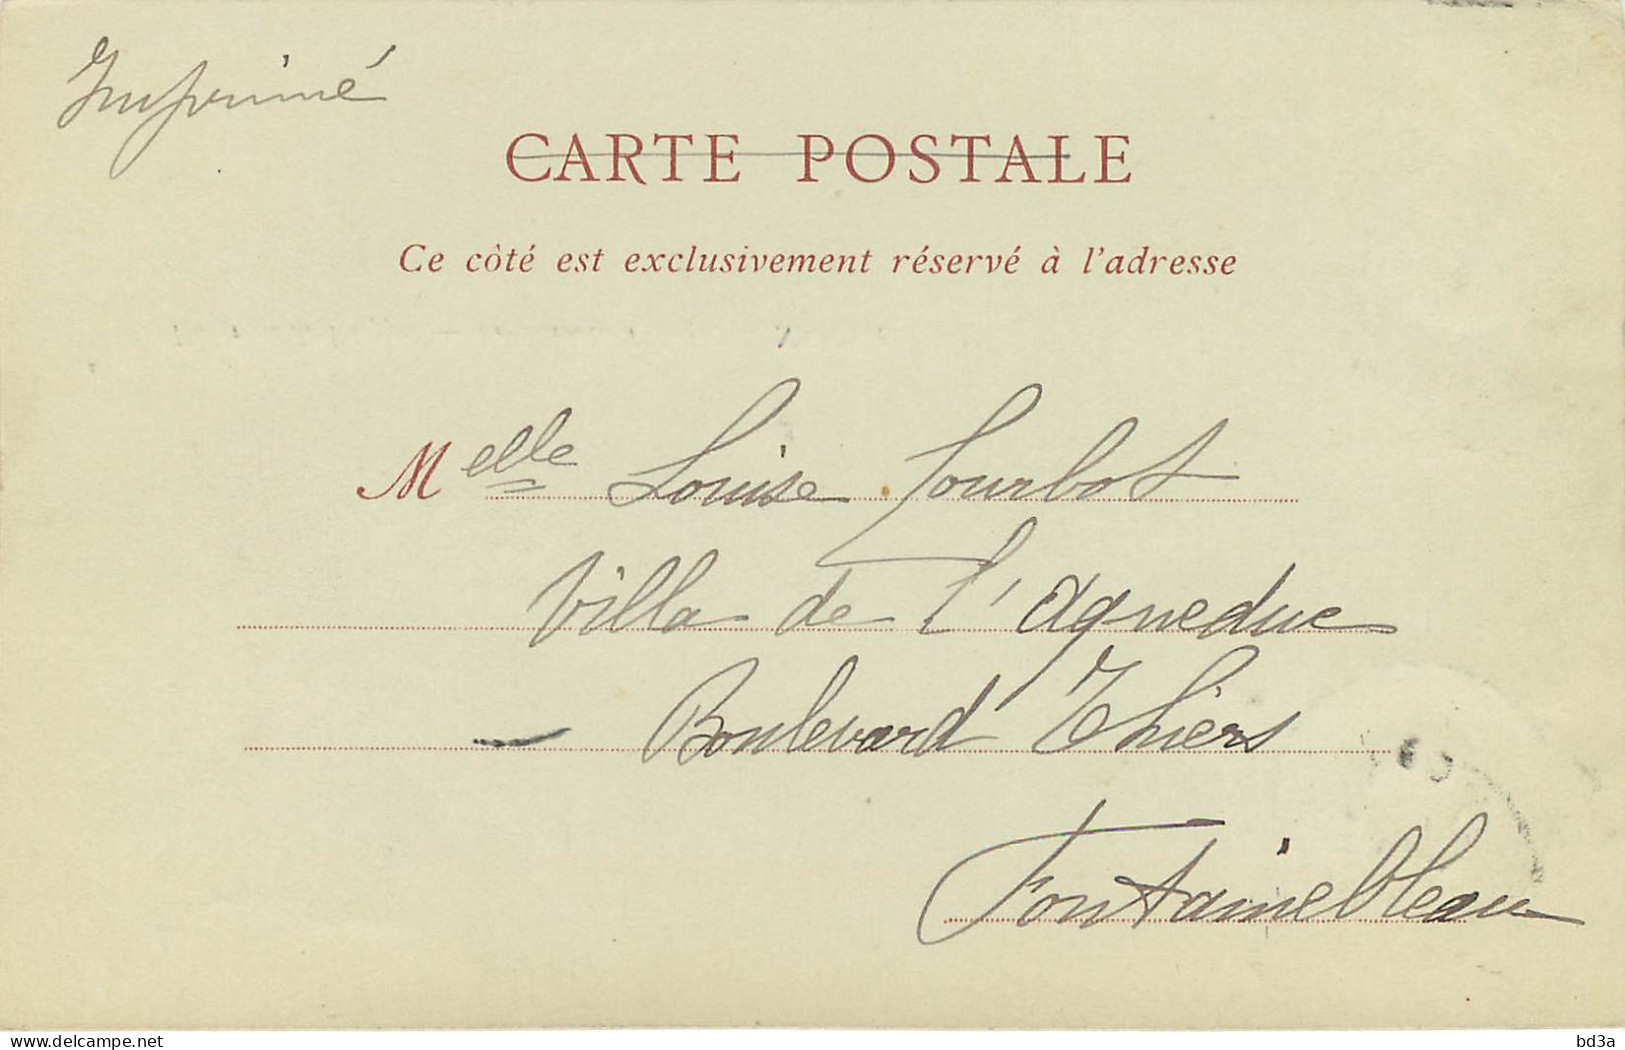 Imprimé
CARTE POSTALE
Ce côté est exclusivement réservé à l'adresse
Melle Louise Jourbot
Villa de l'Aqueduc
Boulevard Thiers
Fontainebleau
delcampe.net
bd3a